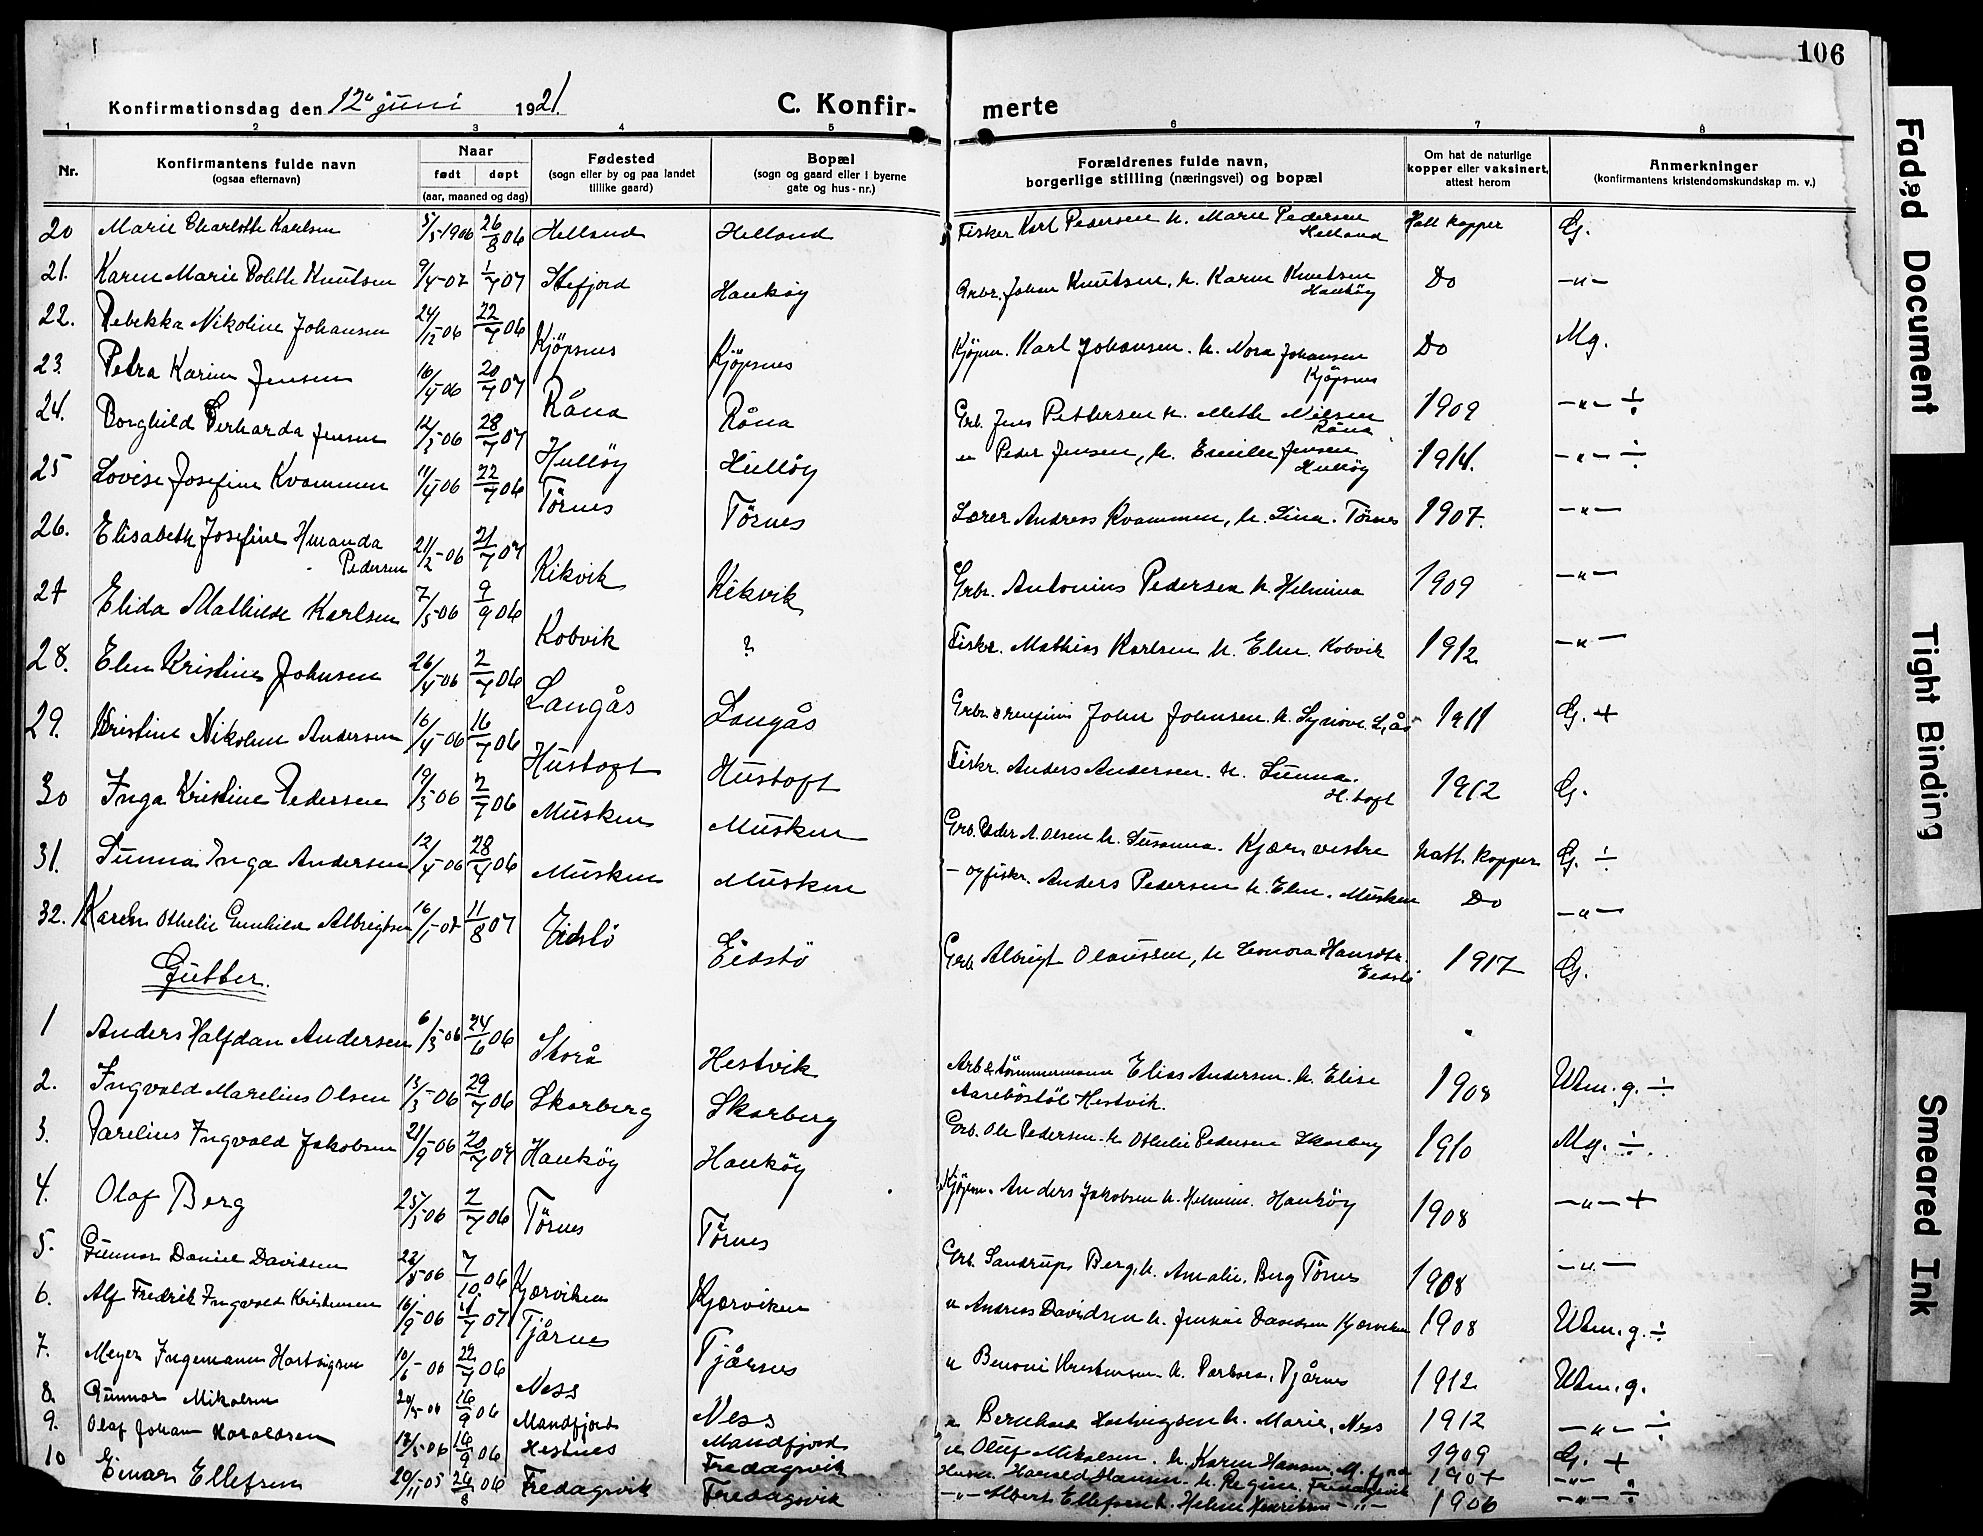 106
Konfirmationsdag den 12 juni 1921.
C. Konfir-
merte
1 2 3 4 5 6 7 8
Nr.
Konfirmantens fulde navn
(ogsaa efternavn)
Naar
født døpt
(aar, maaned og dag)
Fødested
(sogn eller by og paa landet
tillike gaard)
Bopæl
(sogn og gaard eller i byerne
gate og hus-nr.)
Forældrenes fulde navn,
borgerlige stilling (næringsvei) og bopæl
Om hat de naturlige
kopper eller vaksinert,
attest herom
Anmerkninger
(konfirmantens kristendomskundskap m. v.)
20 Marie Charlotte Karlsen 5/5-1906 26/8 06 Helland Helland Fisker Karl Pedersen h. Marie Pedersen Helland Hatt kopper G.
21. Karen Marie Bolette Knutsen 9/4-07 1/7 07 Stefjord Haukøy Grbr. Johan Knutsen, h. Karen Knutsen Haukøy Do -"-
22. Rebekka Nikoline Johansen 24/12-06 22/7 06 Kjöpsnes Kjöpsnes Kjöpm. Karl Johansen. h. Nora Johansen Kjöpsnes Do Mg.
23. Petra Karine Jensen 16/5-06 20/7 07 Råna Råna Grb. Jens Pettersen h. Mette Nilsen Råna 1909 -"- ÷
24. Borghild Gerharda Jensen 12/3-06 28/7 07 Hulløy Hulløy " Peder Jensen, h. Emilie Jensen Hulløy 1914. -"- ÷
25 Lovise Josefine Kvammen 11/4-06 22/7 06 Törnes Törnes Lærer Andreas Kvammen, h. Lina. Törnes 1907. -"-
26. Elisabeth Josefine Hmanda Pedersen 21/2-06 21/7 07 Kikvik Kikvik Grbr. Antonius Pedersen h. Helmina 1909 -"-
27 Elida Mathilde Karlsen 7/5-06 9/9 06 Kobvik ? Fiskr. Mathias Karlsen h. Elen. Kobvik 1912 -"-
28. Elen Kristine Johnsen 26/4-06 2/7 06 Langås Langås Grbr. John Johnsen. h. Synove. L,ås 1911 G. +
29. Kristine Nikoline Andersen 16/4-06 16/7 06 Hustoft Hustoft Fiskr. Anders Andersen. h. Sunna. H.toft 1912 G.
30 Inga Kristine Pedersen 19/3-06 2/7 06 Musken Musken Grb. Peder A. Olsen h. Susanna. Kjær vestre Natt. kopper G. ÷
31. Sunna Inga Andersen 12/4-06 28/7 06 Musken Musken - og fiskr. Anders Pedersen h. Elen. Musken Do -"-
32. Karen Othelie Gunhild Albrigtsen 16/1-07 11/8 07 Eidstö Eidstö Grb Albrigt Olaussen, h Leonora Hansdtr. Eidstö 1917 G.
Gutter.
1 Anders Halfdan Andersen 6/3-06 24/6 06 Storå Hestvik Arb & tömmermann Elias Andersen. h. Elise Aarebøstöl Hestvik. 1908 Utm. g. ÷
2. Ingvald Marelius Olsen 13/3-06 29/7 06 Skarberg Skarberg Grb. Ole Pedersen. h Othelie Pedersen Skarberg 1910 Mg. ÷.
3. Parelius Ingvald Jakobsen 21/9-06 20/7 07 Haukøy Haukøy Kjöpm. Anders Jakobsen h. Helmine. Haukøy 1908 -"- +
4. Olaf Berg 25/3-06 2/7 06 Törnes Törnes Grb. Sandrup Berg, h. Amalie. Berg Törnes 1908 -"-
5. Gunnar Daniel Davidsen 22/8-06 7/10 06 Kjærviken Kjærviken " Andreas Davidsen h. Jensine Davidsen Kjærviken 1908 Utm. g. ÷
6. Alf Fredrik Ingvald Kristensen 16/9-06 7/7 07 Tjårnes Tjårnes " Benoni Kristensen h. Barbara. Tjårnes 1912 Utm. g.
7. Meyer Ingemann Hartvigsen 10/6-06 22/7 06 Ness Ness " Bernhard Hartvigsen h. Marie, Ness 1912 -"- ÷
8. Gunnar Mikalsen 20/5-06 16/9 06 Mandfjord Mandfjord " Oluf Mikalsen. h. Karen Hansen, M.fjord 1909 G. +
9. Olaf Johan Haraldsen 13/5-06 16/9 06 Hestnes Fredagsvik Husm. Harald Hansen h. Regine. Fredagsvik 1907 -"-
10 Einar Ellefsen 20/11-05 26/8 06 Fredagsvik Fredagsvik -"- Albert Ellefsen h. Helene Henriksen -"- 1906 -"- ÷
Faded Document
Tight Binding
Smeared Ink